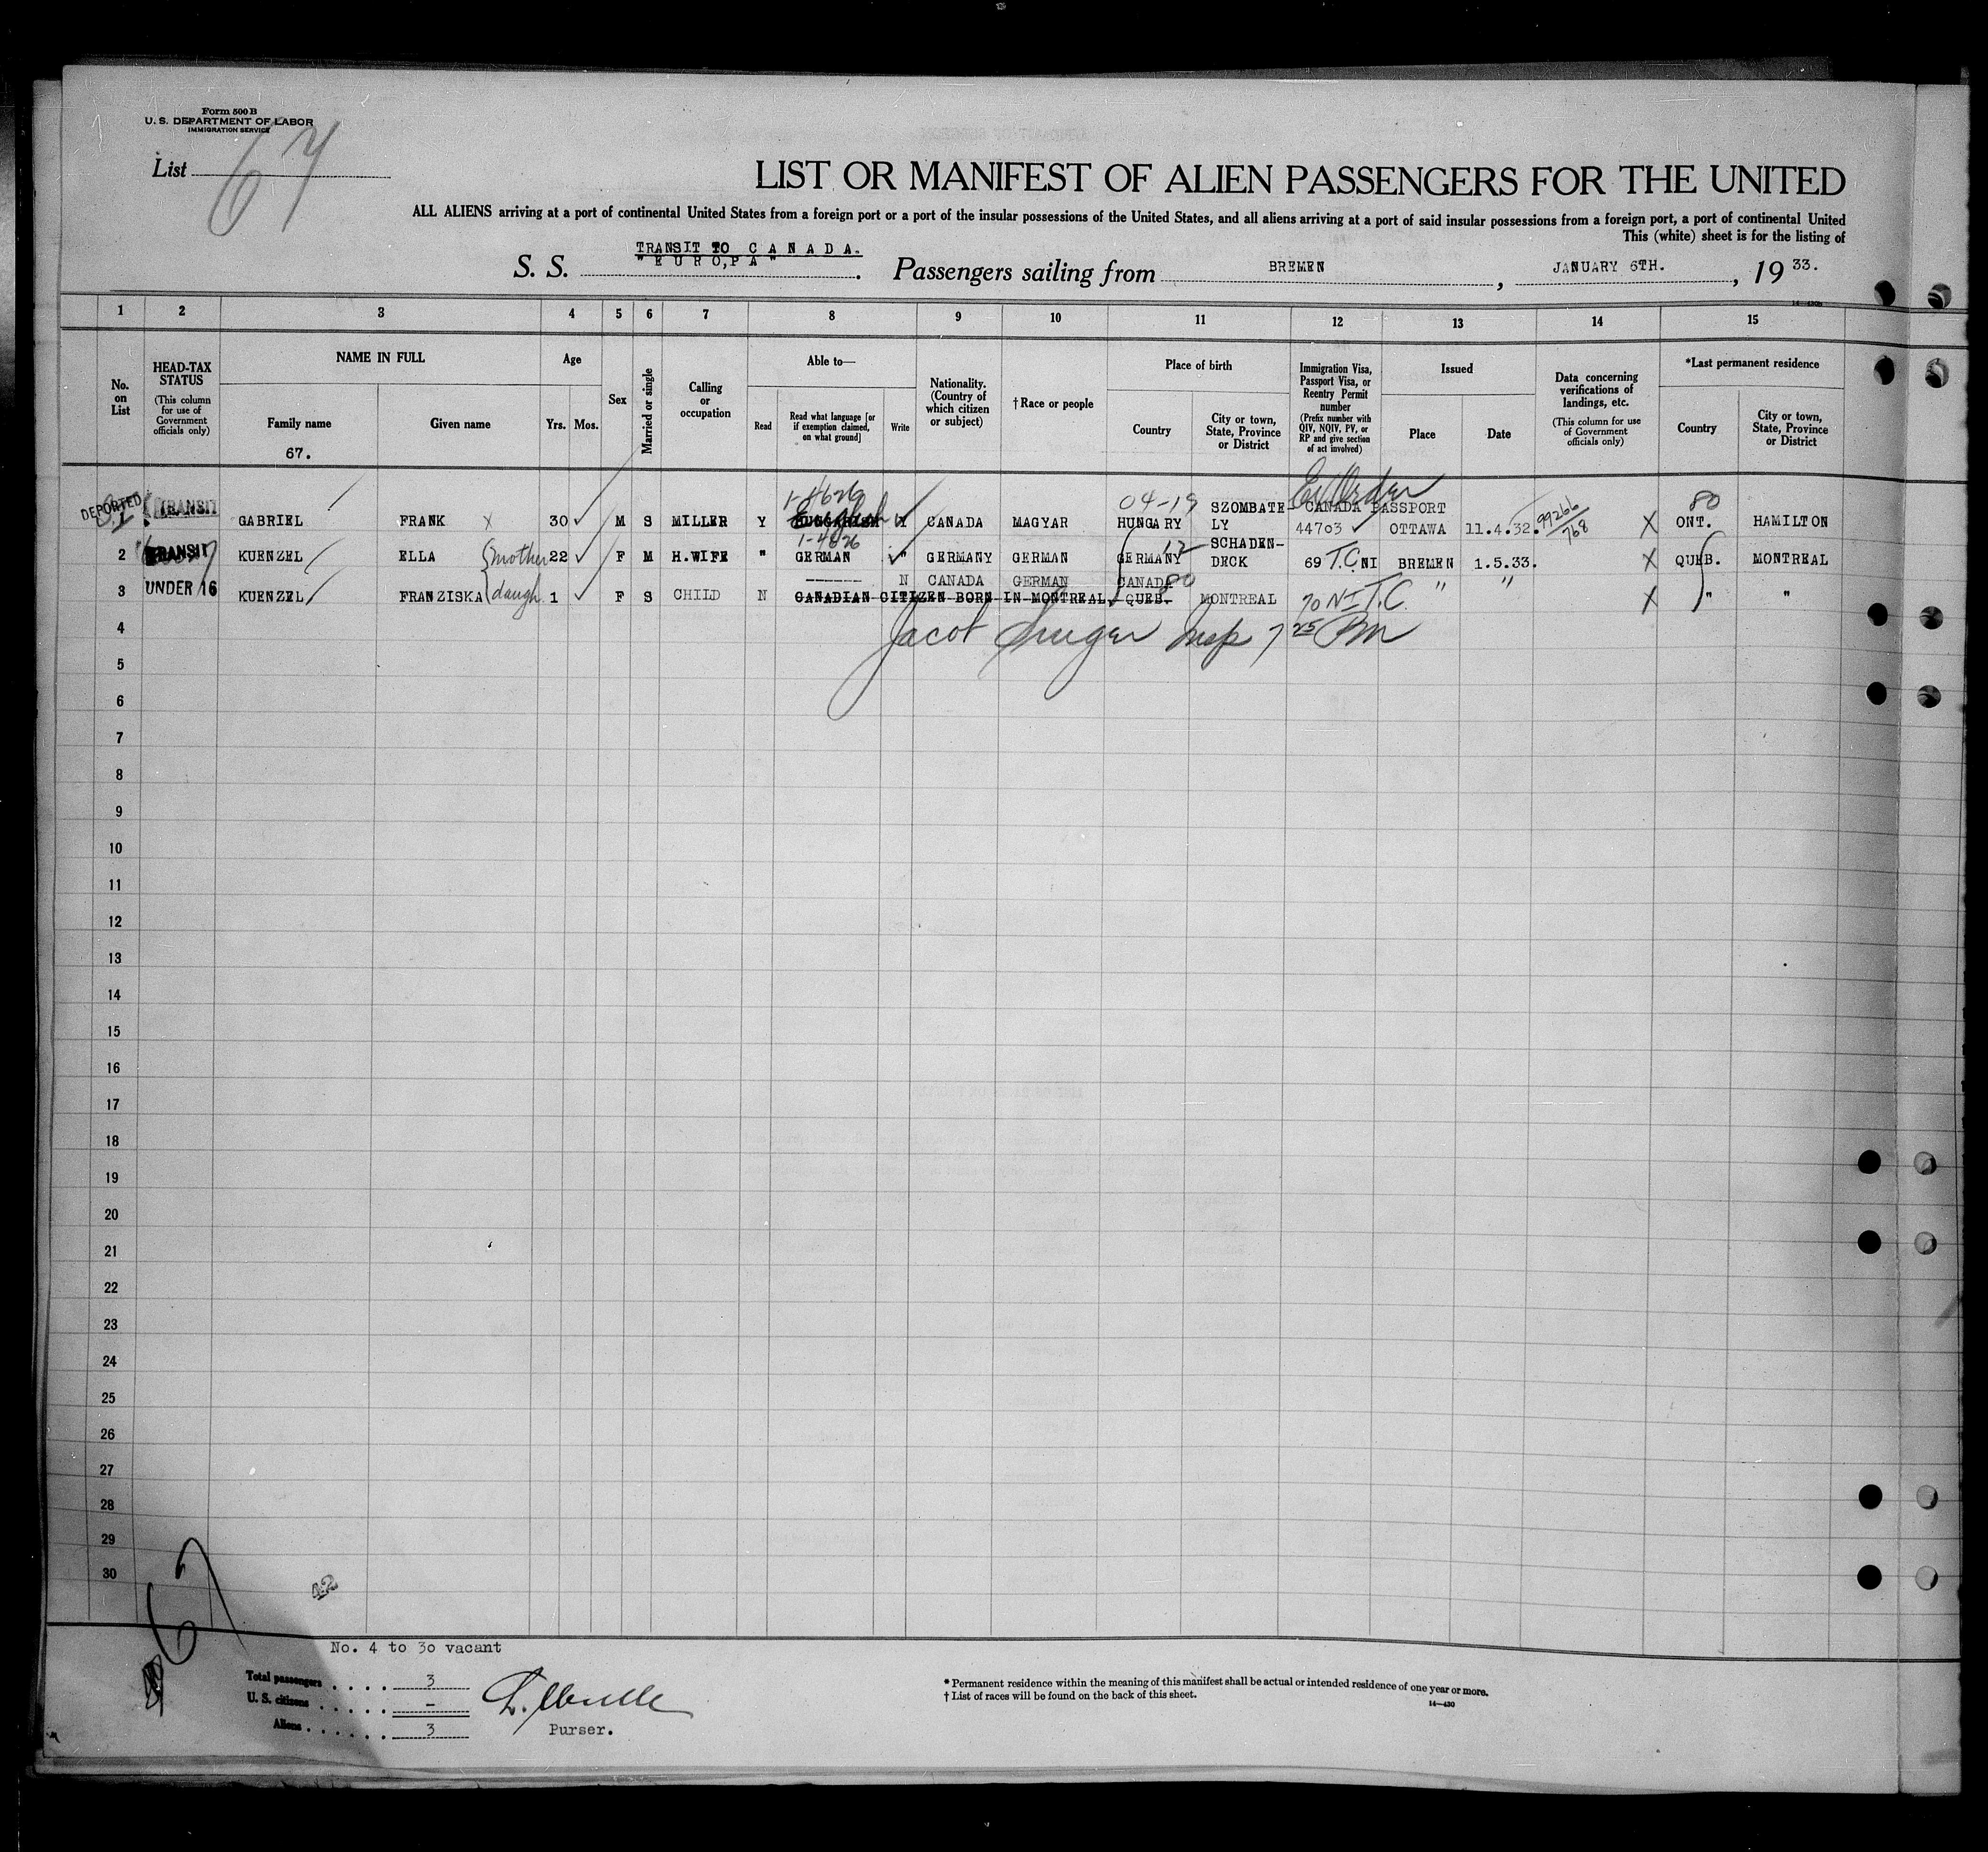 Form 500 B
U. S. DEPARTMENT OF LABOR
IMMIGRATION SERVICE
List 67
LIST OR MANIFEST OF ALIEN PASSENGERS FOR THE UNITED
ALL ALIENS arriving at a port of continental United States from a foreign port or a port of the insular possessions of the United States, and all aliens arriving at a port of said insular possessions from a foreign port, a port of continental United
This (white) sheet is for the listing of
TRANSIT TO CANADA.
S. S. "EUROPA". Passengers sailing from BREMEN, JANUARY 6TH., 19 33.
14—430b
1 2 3 4 5 6 7 8 9 10 11 12 13 14 15
No. on List
HEAD-TAX STATUS
(This column for use of Government officials only)
NAME IN FULL
Family name
67.
Given name
Age
Yrs. Mos.
Sex
Married or single
Calling or occupation
Able to—
Read
Read what language [or if exemption claimed, on what ground]
Write
Nationality. (Country of which citizen or subject)
†Race or people
Place of birth
Country
City or town, State, Province or District
Immigration Visa, Passport Visa, or Reentry Permit number
(Prefix number with QIV, NQIV, PV, or RP and give section of act involved)
Issued
Place
Date
Data concerning verifications of landings, etc.
(This column for use of Government officials only)
*Last permanent residence
Country
City or town, State, Province or District
1-4626 04-19 SZOMBATE- CANADA PASSPORT 80
DEPORTED TRANSIT GABRIEL FRANK X 30 M S MILLER Y English Y CANADA MAGYAR HUNGARY LY 44703 OTTAWA 11.4.32. 99266/768 X ONT. HAMILTON
1-4626 12 SCHADEN-
2 TRANSIT KUENZEL ELLA mother 22 F M H.WIFE " GERMAN " GERMANY GERMAN GERMANY DECK 69 T.C. NI BREMEN 1.5.33. X QUEB. MONTREAL
------ N CANADA GERMAN CANADA 80
3 UNDER 16 KUENZEL FRANZISKA daugh. 1 F S CHILD N CANADIAN CITIZEN BORN IN MONTREAL, QUEB. MONTREAL 70 NI T.C. " " X " "
Jacob Insp 7 25 PM
4
5
6
7
8
9
10
11
12
13
14
15
16
17
18
19
20
21
22
23
24
25
26
27
28
29
30
67
42
No. 4 to 30 vacant
Total passengers . . . . 3
U. S. citizens . . . . . –
Aliens . . . . . . 3
Purser.
* Permanent residence within the meaning of this manifest shall be actual or intended residence of one year or more.
† List of races will be found on the back of this sheet.
14—430